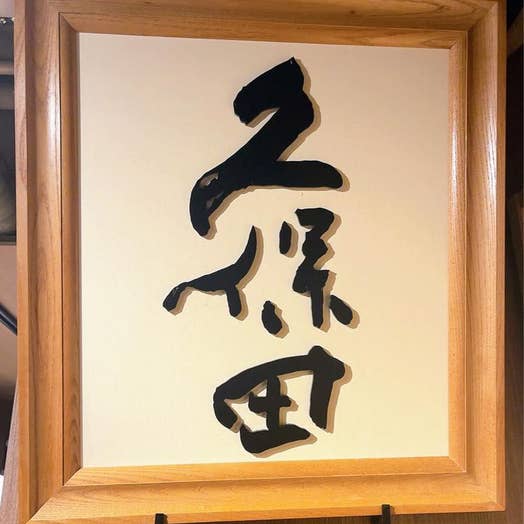 久保田